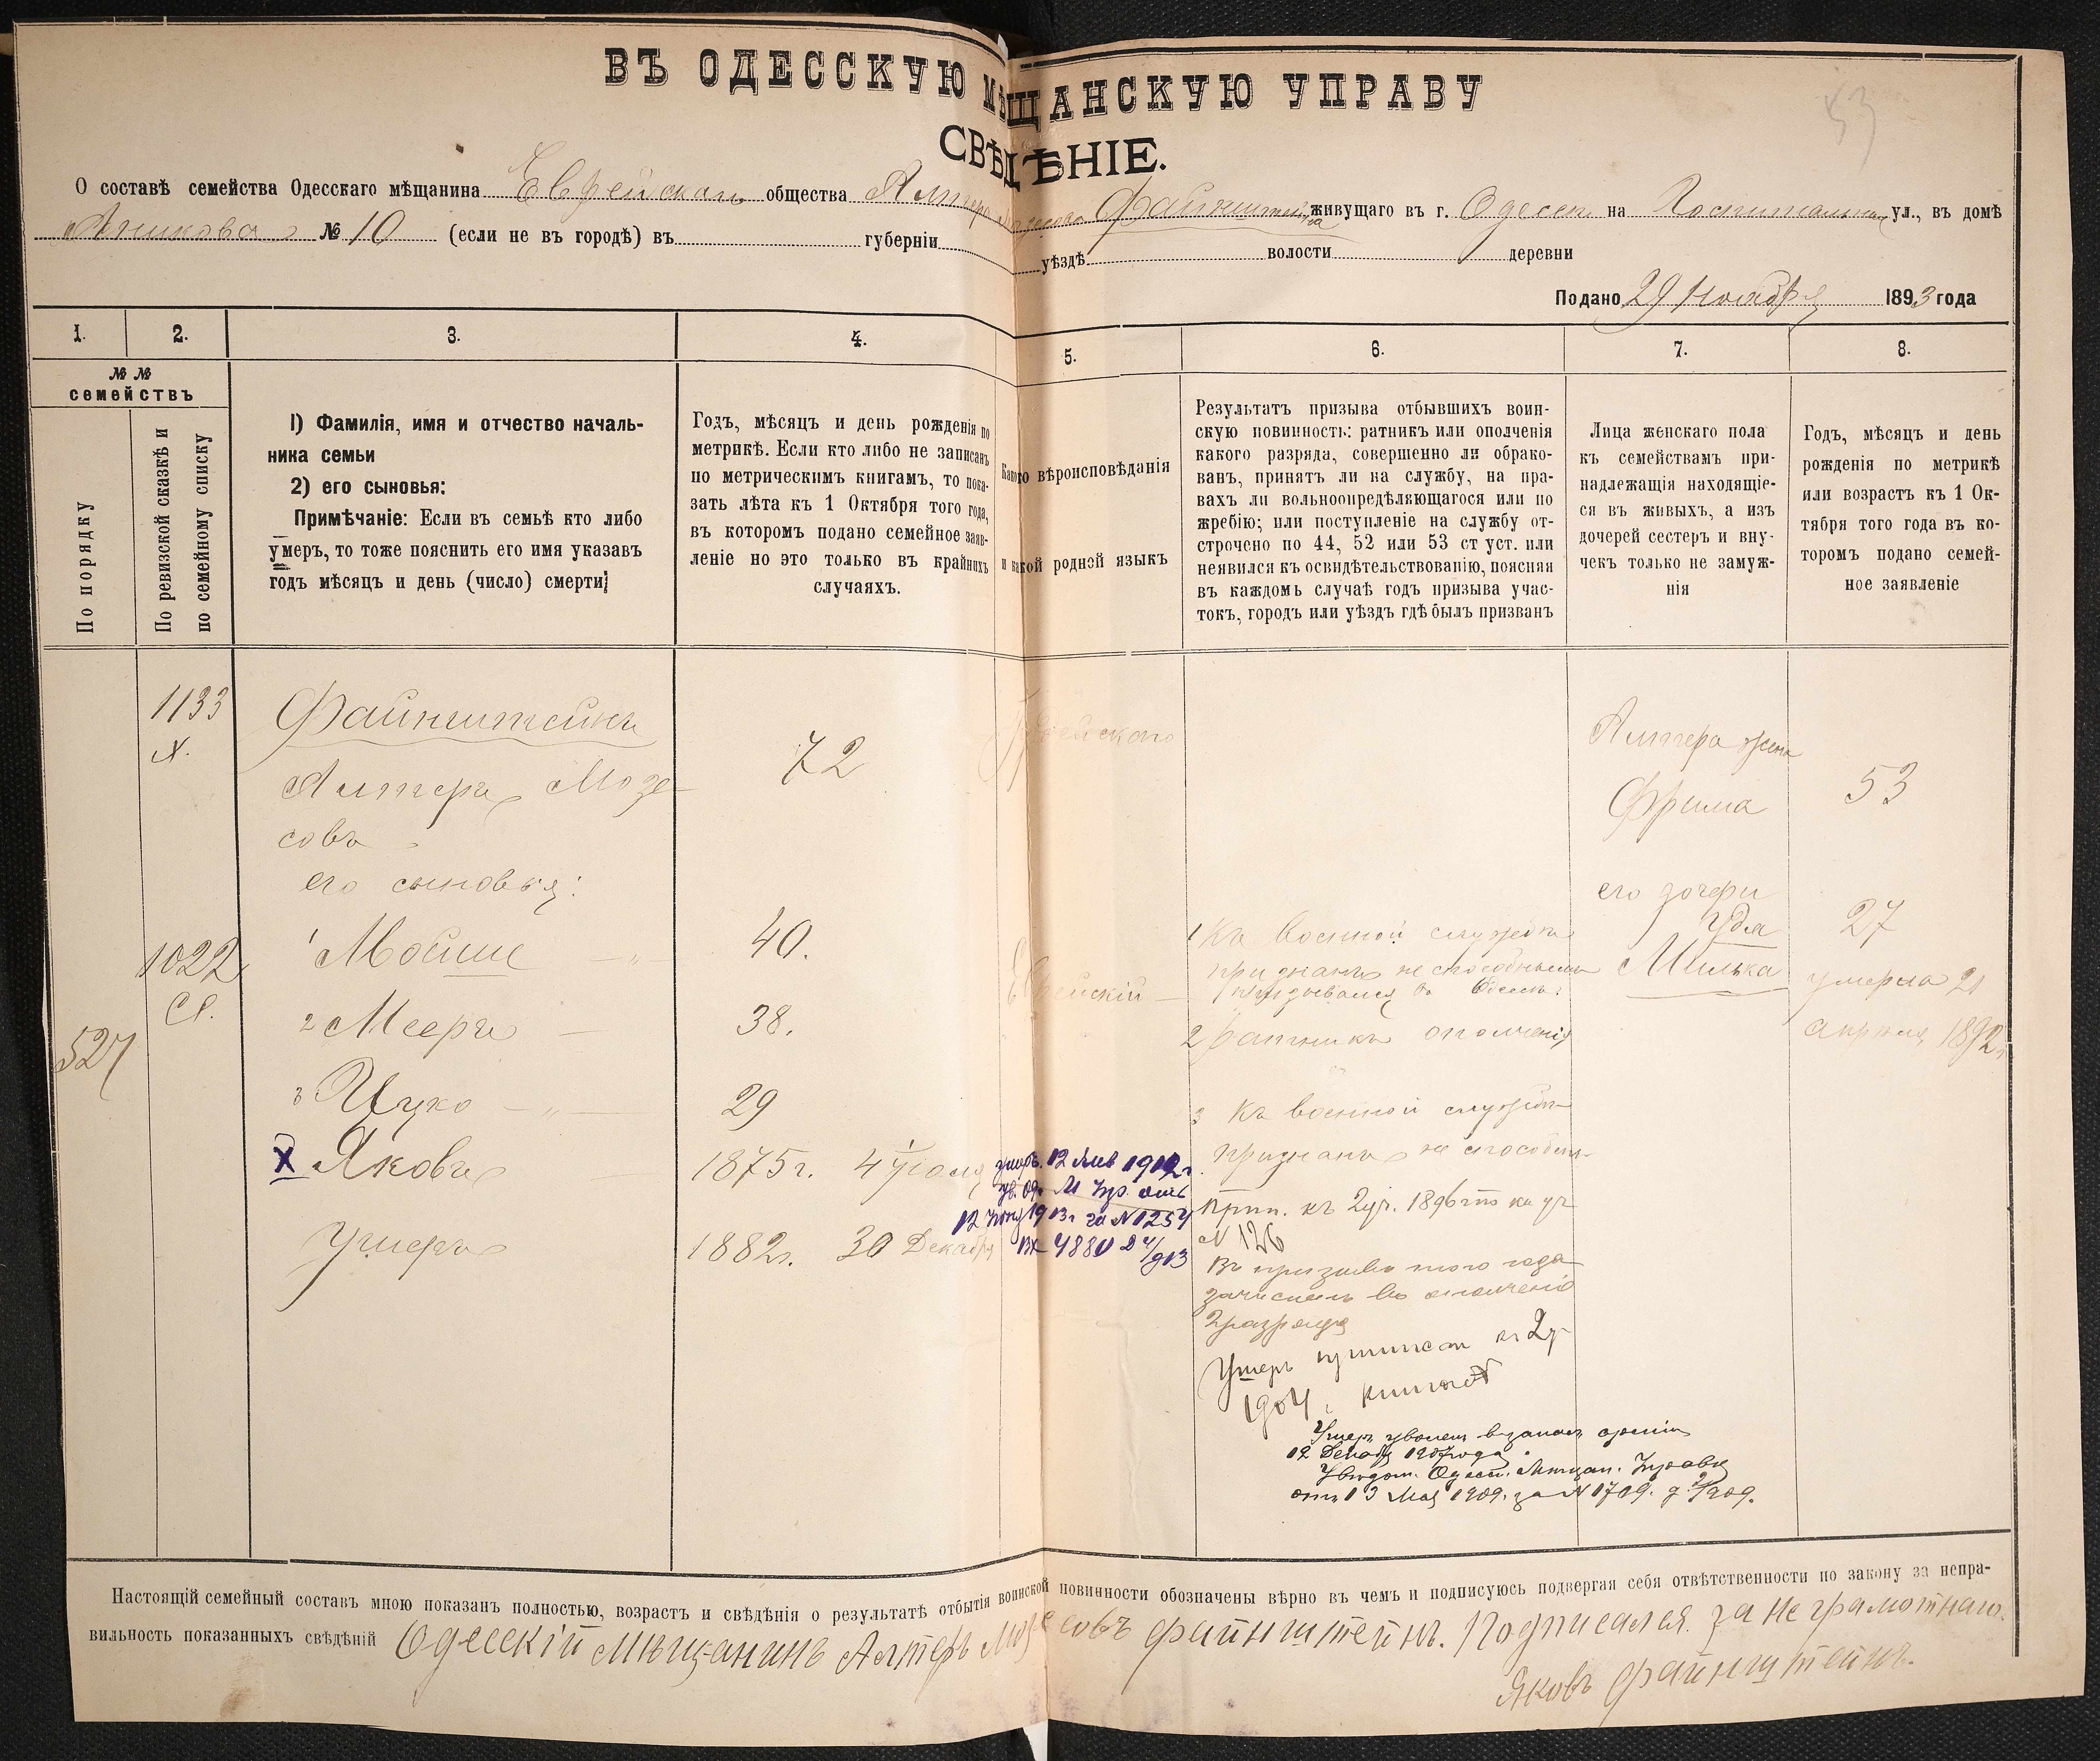 ВЪ ОДЕССКУЮ МѢЩАНСКУЮ УПРАВУ
СВѢДѢНІЕ.
53
О составѣ семейства Одесскаго мѣщанина Еврейскаго общества Алтера Мозесова Файнштейна живущаго въ г. Одессѣ на Госпитальной ул., въ домѣ
№ 10 (если не въ городѣ) въ губерніи уѣздѣ волости деревни
Подано 29 Ноября 1893 года
1. 2. 3. 4. 5. 6. 7. 8.
№ №
семействъ
По порядку
По ревизской сказкѣ и
по семейному списку
1) Фамилія, имя и отчество началь-
ника семьи
2) его сыновья:
Примѣчаніе: Если въ семьѣ кто либо
умеръ, то тоже пояснить его имя указавъ
годъ мѣсяцъ и день (число) смерти;
Годъ, мѣсяцъ и день рожденія по
метрикѣ. Если кто либо не записанъ
по метрическимъ книгамъ, то пока-
зать лѣта къ 1 Октября того года,
въ которомъ подано семейное заяв-
леніе но это только въ крайнихъ
случаяхъ.
Какого вѣроисповѣданія
и какой родной языкъ
Результатъ призыва отбывшихъ воин-
скую повинность: ратникъ или ополченія
какого разряда, совершенно ли обрако-
ванъ, принятъ ли на службу, на пра-
вахъ ли вольноопредѣляющагося или по
жребію; или поступленіе на службу от-
строчено по 44, 52 или 53 ст уст. или
неявился къ освидѣтельствованію, поясняя
въ каждомъ случаѣ годъ призыва учас-
токъ, городъ или уѣздъ гдѣ былъ призванъ
Лица женскаго пола
къ семействамъ при-
надлежащія находящіе-
ся въ живыхъ, а изъ
дочерей сестеръ и вну-
чекъ только не замуж-
нія
Годъ, мѣсяцъ и день
рожденія по метрикѣ
или возрастъ къ 1 Ок-
тября того года въ ко-
торомъ подано семей-
ное заявленіе
527
1133
1022
Файнштейнъ
Алтеръ Мозе-
совъ
его сыновья:
1 Мойше
2 Мееръ
3 Ицко
X Яковъ
Ушеръ
72
40.
38.
29
1875 г. 4 Іюля
1882 г. 30 Декабря
Еврейскаго
Еврейскій
12 Янв 1912 г.
за № 1254
1 Къ военной службѣ
признанъ не способнымъ
призывался въ Одессѣ.
2 ратникъ ополченія
3 Къ военной службѣ
признанъ не способн.
Прип. къ 2 уч. 1896
№ 126
Въ призывъ того года
зачисленъ въ ополченіе
2 разряда
Ушеръ приписан к 2 у
1904 г.
Ушеръ уволен в запас арміи
12 Декабр 1907 года.
Уведом. Одесс. Мѣщан. Управы
отъ 13 Мая 1909. за № 1709.
Алтера жена
Фрима
его дочери
Удля
Милька
53
27
умерла 21
апреля 1892 г.
Настоящій семейный составъ мною показанъ полностью, возрастъ и свѣдѣнія о результатѣ отбытія воинской повинности обозначены вѣрно въ чемъ и подписуюсь подвергая себя отвѣтственности по закону за непра-
вильность показанныхъ свѣдѣній Одесскій мѣщанинъ Алтеръ Мозесовъ Файнштейнъ. Подписался за неграмотнаго
Яковъ Файнштейнъ.